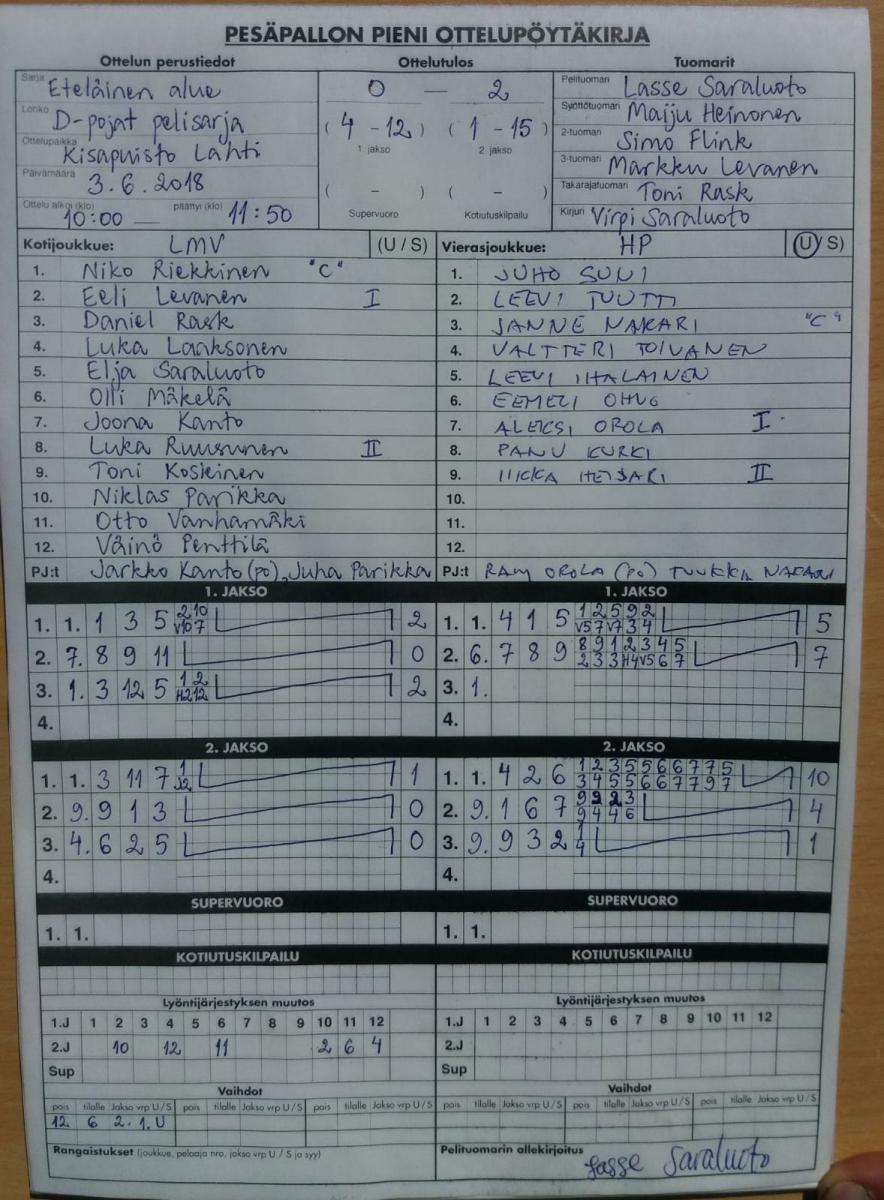 PESÄPALLON PIENI OTTELUPÖYTÄKIRJA
Ottelun perustiedot Ottelutulos Tuomarit
Sarja Eteläinen alue
Lohko D-pojat pelisarja
Ottelupaikka Kisapuisto Lahti
Päivämäärä 3.6.2018
Ottelu alkoi (klo) 10:00 — päättyi (klo) 11:50
0 — 2
(4 - 12) (1 - 15)
1. jakso 2. jakso
( - ) ( - )
Supervuoro Kotiutuskilpailu
Pelituomari Lasse Saraluoto
Syöttötuomari Maiju Heinonen
2-tuomari Simo Flink
3-tuomari Markku Levanen
Takarajatuomari Toni Rask
Kirjuri Virpi Saraluoto
Kotijoukkue: LMV (U / S)
1. Niko Riekkinen "C"
2. Eeli Levanen I
3. Daniel Rask
4. Luka Laaksonen
5. Elja Saraluoto
6. Olli Mäkelä
7. Joona Kanto
8. Luka Ruusunen II
9. Toni Koskinen
10. Niklas Parikka
11. Otto Vanhamäki
12. Väinö Penttilä
PJ:t Jarkko Kanto (po), Juha Parikka
Vierasjoukkue: HP (U / S)
1. JUHO SUNI
2. LEEVI TUUTTI
3. JANNE NAKARI "C"
4. VALTTERI TOIVANEN
5. LEEVI IHALAINEN
6. EEMELI
7. ALEKSI OROLA I
8. PANU KURKI
9. IIKKA II
10.
11.
12.
PJ:t OROLA (po) TUUKKA NAKARI
1. JAKSO
1. 1. 1 3 5 2 10 2
V10 7
2. 7. 8 9 11 0
3. 1. 3 12 5 1 2 2
H2 12
4.
1. JAKSO
1. 1. 4 1 5 1 2 5 9 2 5
V5 7 V7 3 4
2. 6. 7 8 9 8 9 1 2 3 4 5 7
2 3 3 H4 V5 6 7
3. 1.
4.
2. JAKSO
1. 1. 3 11 7 1 1
2. 9. 9 1 3 0
3. 4. 6 2 5 0
4.
2. JAKSO
1. 1. 4 2 6 1 2 3 5 5 6 6 7 7 5 10
3 4 5 5 6 6 7 7 9 7
2. 9. 1 6 7 9 9 2 3 4
9 4 4 6
3. 9. 9 3 2 1 1
4
4.
SUPERVUORO
1. 1.
SUPERVUORO
1. 1.
KOTIUTUSKILPAILU
KOTIUTUSKILPAILU
Lyöntijärjestyksen muutos
1.J 1 2 3 4 5 6 7 8 9 10 11 12
2.J 10 12 11 2 6 4
Sup
Lyöntijärjestyksen muutos
1.J 1 2 3 4 5 6 7 8 9 10 11 12
2.J
Sup
Vaihdot
pois tilalle Jakso vrp U / S pois tilalle Jakso vrp U / S pois tilalle Jakso vrp U / S
12 6 2. 1. U
Vaihdot
pois tilalle Jakso vrp U / S pois tilalle Jakso vrp U / S pois tilalle Jakso vrp U / S
Rangaistukset (joukkue, pelaaja nro, jakso vrp U / S ja syy)
Pelituomarin allekirjoitus Lasse Saraluoto